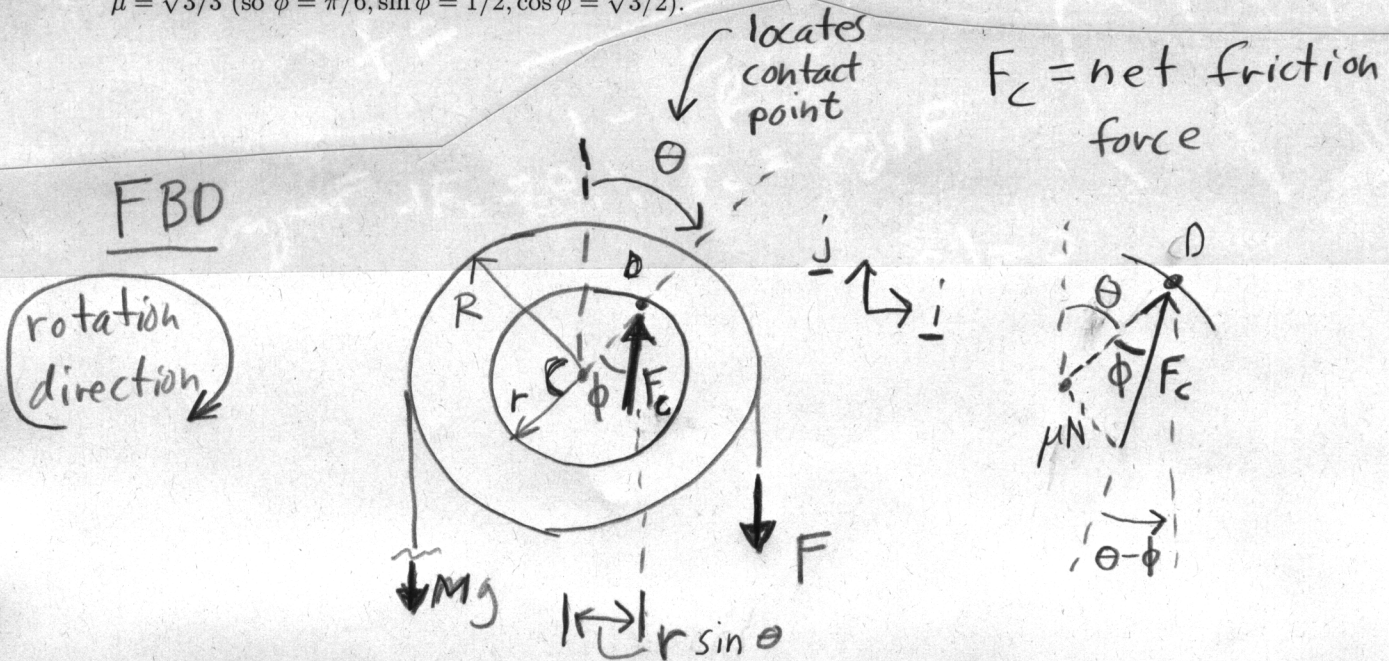 μ = √3/3 (so φ = π/6, sin φ = 1/2, cos φ = √3/2).
locates
contact
point
F_c = net friction
force
θ
FBD
rotation
direction
R
D
C
r
φ
F_c
j
i
D
θ
φ
F_c
μN
θ-φ
F
Mg
r sin θ